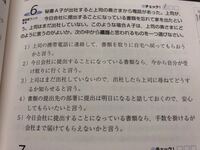 チェック!
No.6 秘書A子が出社すると上司の奥さまから電話があった。上司が
今日会社に提出することになっている書類を忘れて家を出たとい
う。上司はまだ出社していない。このような場合A子は、奥さまにどの
ように言うのがよいか。次の中から適当と思われるものを一つ選びなさ
い。
1）上司の携帯電話に連絡して、書類を取りに自宅へ戻ってもらおう
かと言う。
2）今日会社に提出することになっている書類なら、今から自分が受
け取りに行こうかと言う。
3）上司はまだ出社していないので、出社したら上司に尋ねてどうす
るか知らせると言う。
4）書類の提出先の部署に提出は明日になると話しておくので、安心
してもらいたいと言う。
5）今日会社に提出することになっている書類なら、手数を掛けるが
会社まで届けてもらえないかと言う。
チェック!